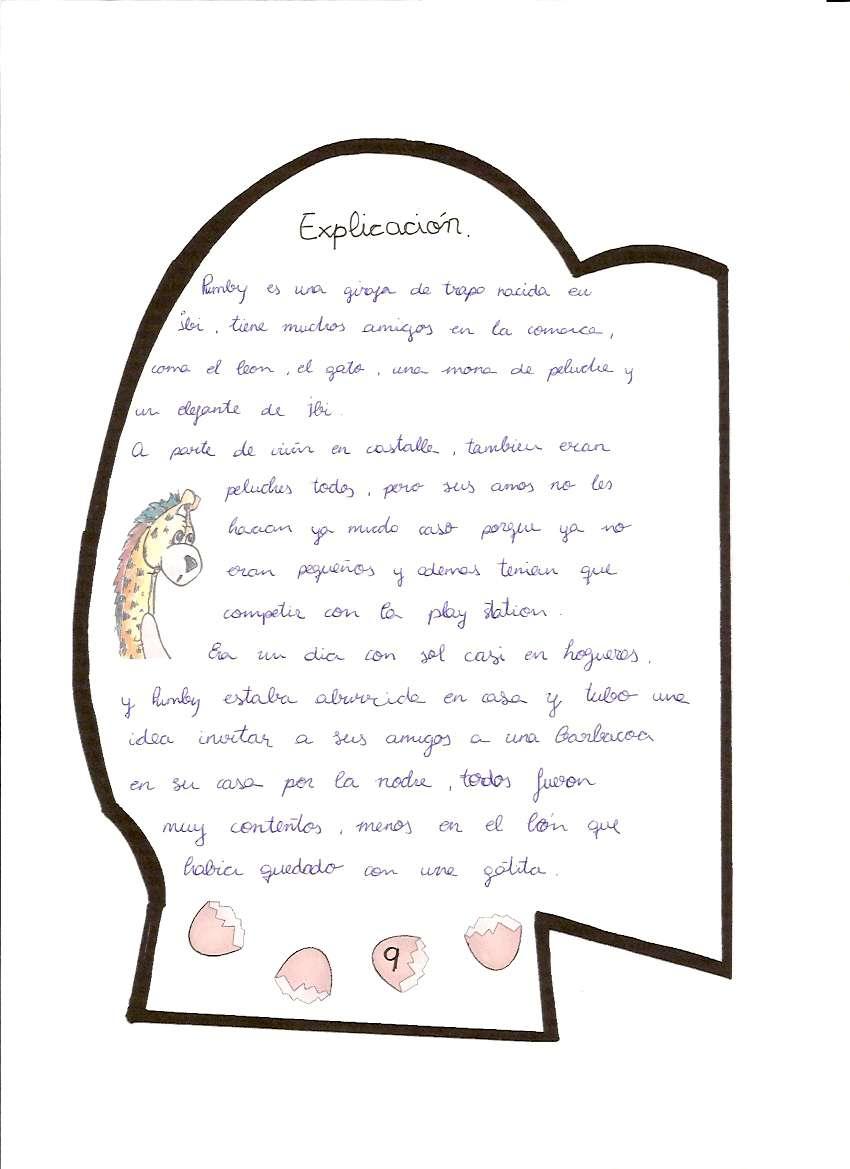 Explicación.
Pumby es una girafa de trapo nacida en
ibi, tiene muchos amigos en la comarca,
como el leon, el gato, una mona de peluche y
un elefante de ibi.
A parte de vivir en castalle, tambien eran
peluches todos, pero sus amos no les
hacian ya mucho caso porque ya no
eran pequeños y ademas tenian que
competir con la play station.
Era un dia con sol casi en hogueres,
y Pumby estaba aburrida en casa y tubo una
idea invitar a sus amigos a una barbacoa
en su casa por la noche, todos fueron
muy contentos, menos en el león que
habia quedado con una gatita.
9